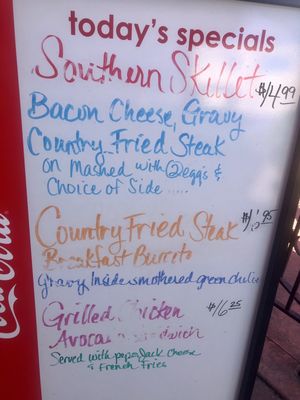 today's specials
Southern Skillet $14.99
Bacon Cheese, Gravy
Country Fried Steak
on Mashed with 2 eggs &
Choice of Side .....
Country Fried Steak
Breakfast Burrito
Gravy Inside smothered green chilie
Grilled Chicken $16.25
Avocado Sandwich
Served with pepper Jack cheese
& French Fries
Coca-Cola